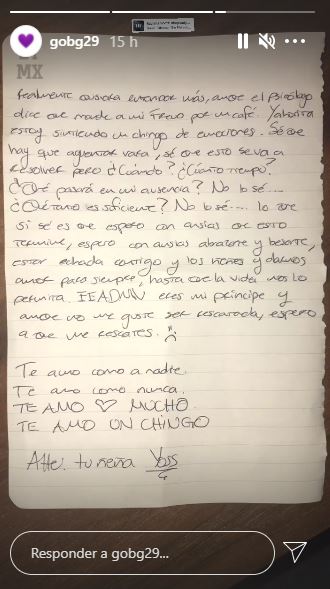 gobg29 15 h
MX
realmente quisiera entender más, aunque el psicólogo
dice que mande a mi Freud por un café. Yahorita
estoy sintiendo un chingo de emociones. Sé que
hay que aguentar vara, sé que esto se va a
resolver pero ¿Cuándo? ¿Cuánto tiempo?
¿Qué pasará en mi ausencia? No lo sé...
¿Qué tanto es suficiente? No lo sé.... lo que
si sé es que espero con ansias que esto
termine, espero con ansias abrazarte y besarte,
estar echada contigo y los y darnos
amor para siempre, hasta que la vida nos lo
permita. eres mi príncipe y
aunque no me guste ser rescatada, espero
a que me rescates. :(
Te amo como a nadie.
Te amo como nunca.
TE AMO ♡ MUCHO.
TE AMO UN CHINGO
Atte: tu ñeña Yoss
Responder a gobg29...